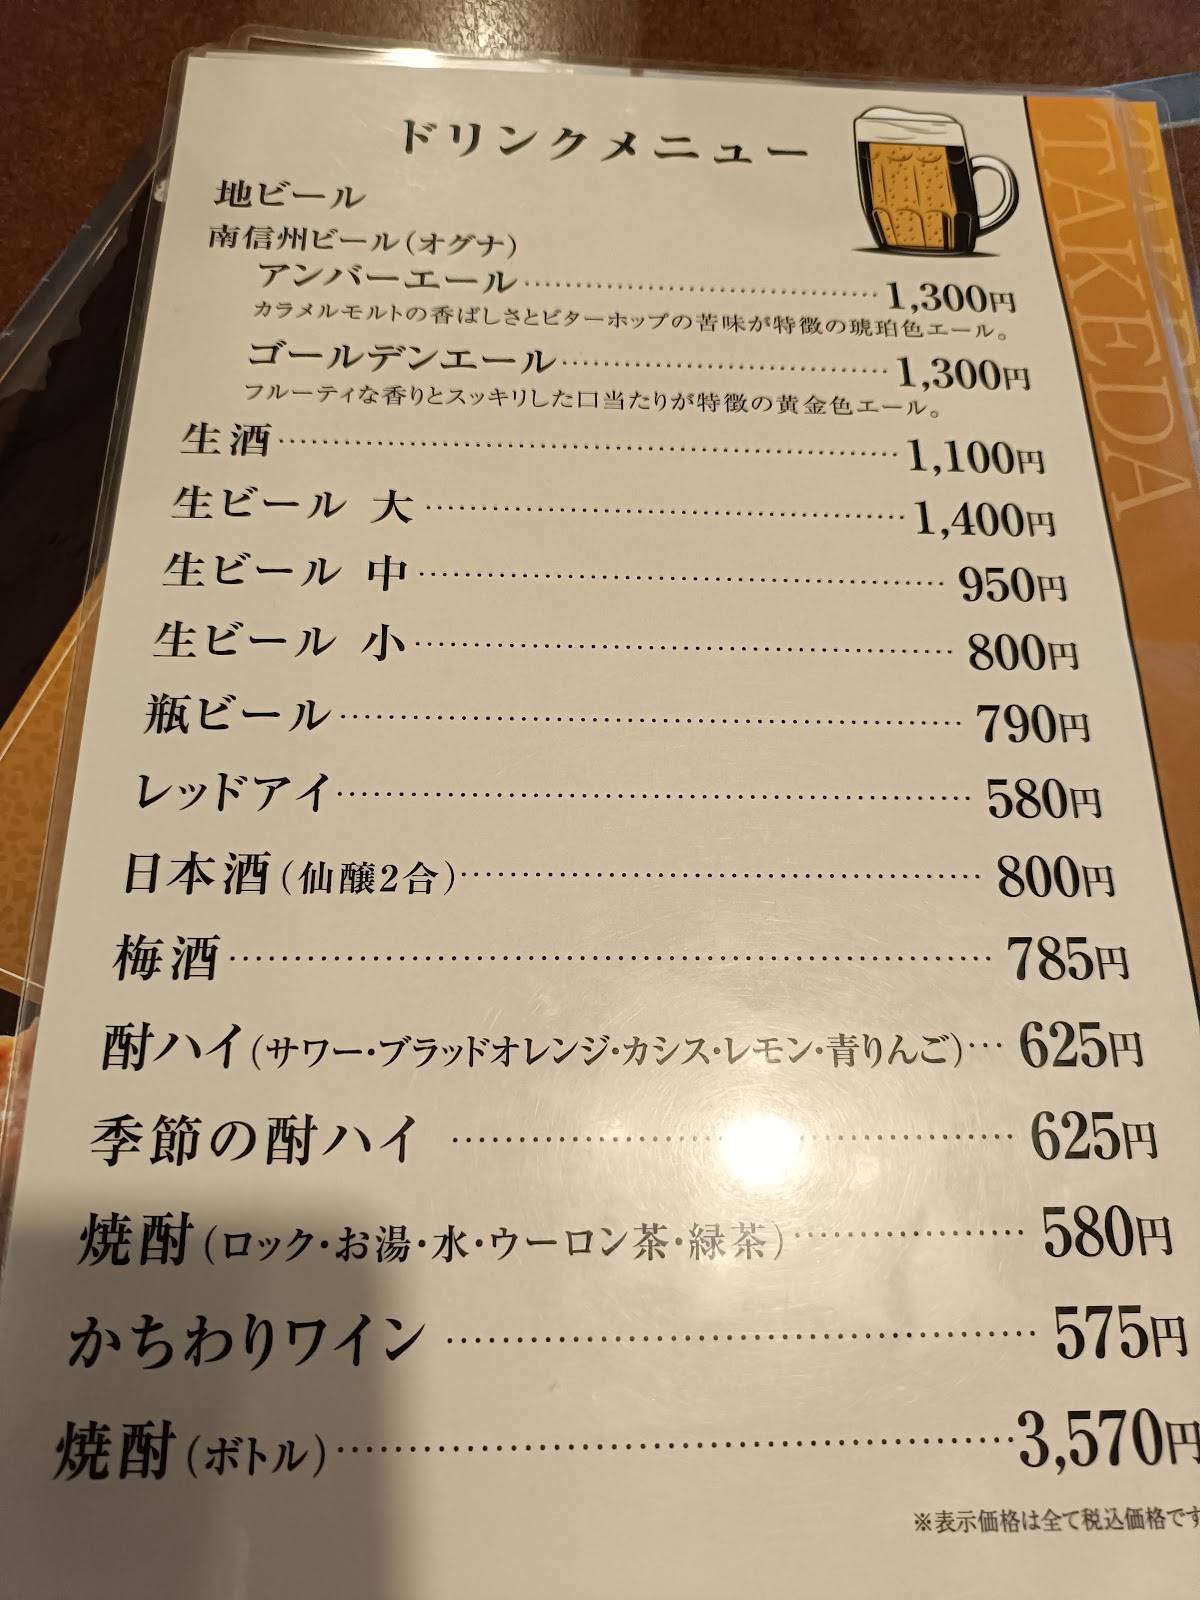 ドリンクメニュー
地ビール
南信州ビール(オグナ)
アンバーエール……………………………1,300円
カラメルモルトの香ばしさとビターホップの苦味が特徴の琥珀色エール。
ゴールデンエール…………………………1,300円
フルーティな香りとスッキリした口当たりが特徴の黄金色エール。
生酒……………………………………………1,100円
生ビール 大…………………………………1,400円
生ビール 中……………………………………950円
生ビール 小……………………………………800円
瓶ビール…………………………………………790円
レッドアイ………………………………………580円
日本酒(仙醸2合)………………………………800円
梅酒………………………………………………785円
酎ハイ(サワー・ブラッドオレンジ・カシス・レモン・青りんご)… 625円
季節の酎ハイ …………………………………625円
焼酎(ロック・お湯・水・ウーロン茶・緑茶)……………580円
かちわりワイン …………………………………575円
焼酎(ボトル)……………………………………3,570円
※表示価格は全て税込価格です
TAKEDA